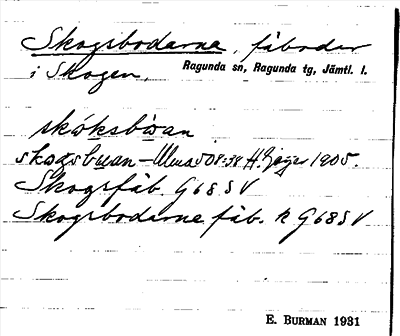 Skogsbodarna, fäbodar
i Skogen, Ragunda sn, Ragunda tg, Jämtl. l.
skóksbòan
skogsbuan - 1905.
Skogsfäb. G68SV
Skogsbodarne fäb. R G68SV
E. BURMAN 1931